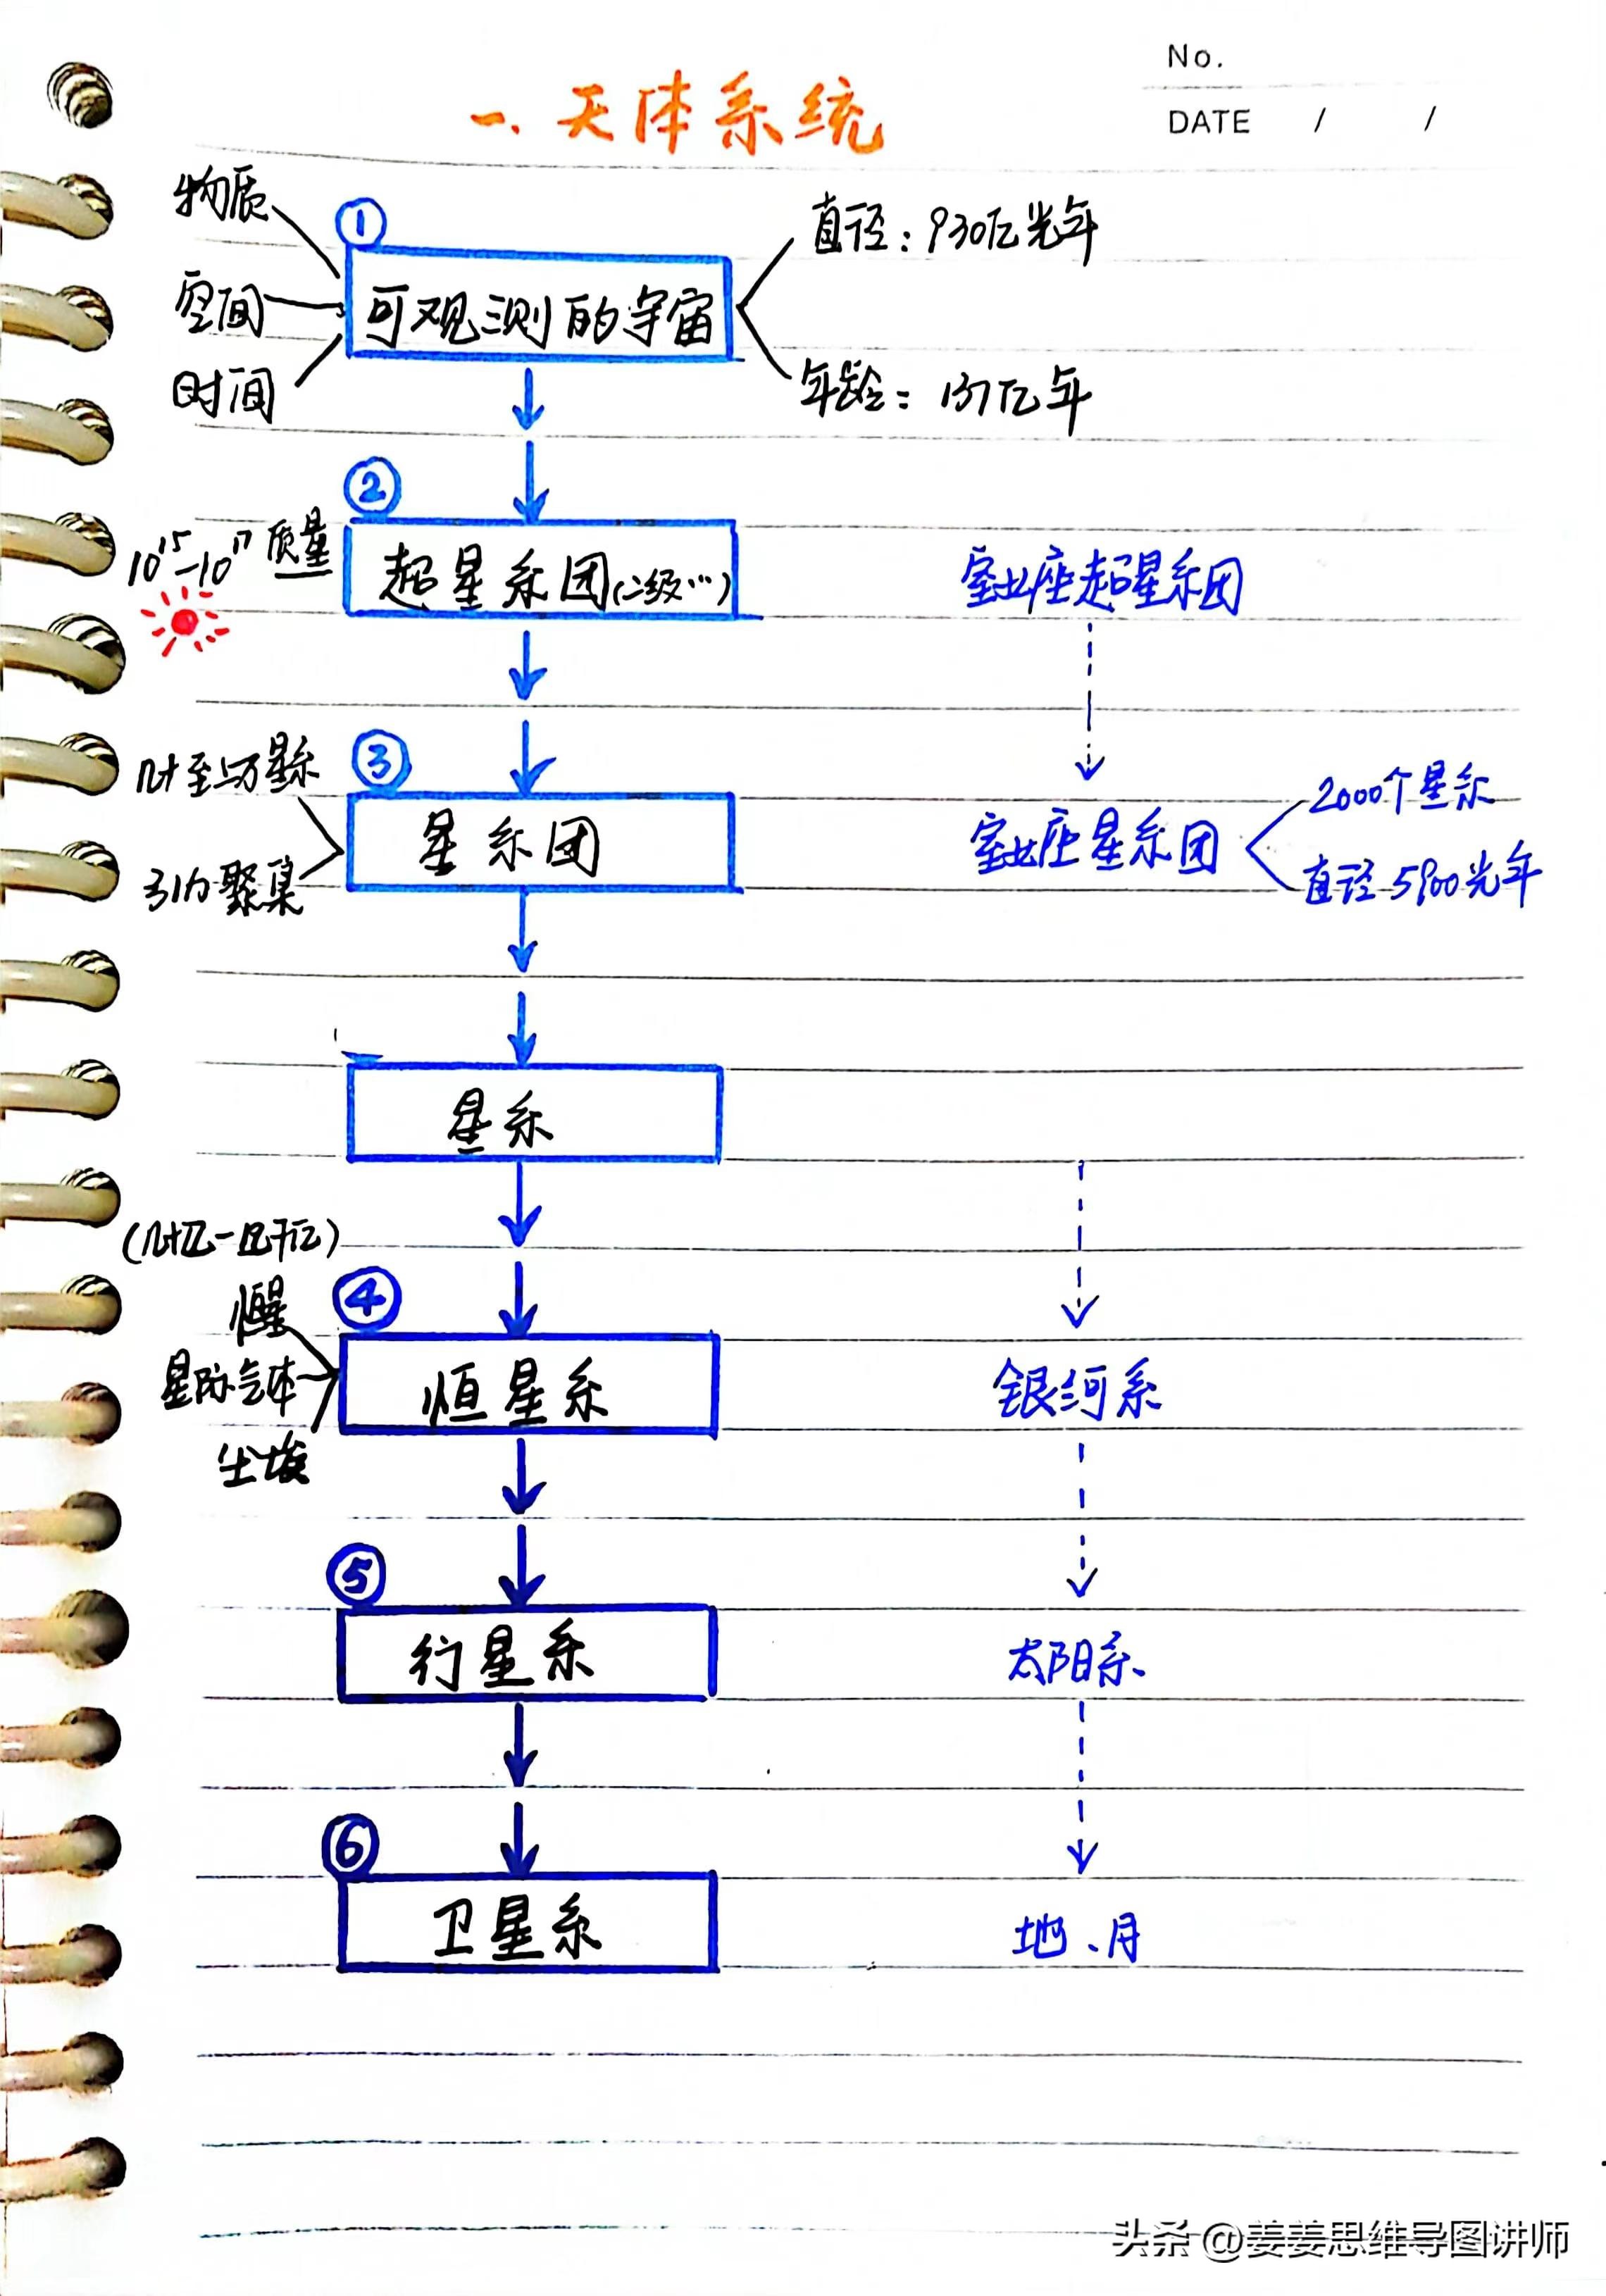 No.
DATE / /
一、天体系统
物质
空间
时间
①
可观测的宇宙
直径：930亿光年
年龄：137亿年
②
10¹⁵—10¹⁷ 质量
超星系团(二级…)
室女座超星系团
③
几十至上万星系
引力聚集
星系团
室女座星系团
2000个星系
直径5900光年
星系
(几十亿—几千亿)
④
恒星
星际气体
尘埃
恒星系
银河系
⑤
行星系
太阳系
⑥
卫星系
地、月
头条 @姜姜思维导图讲师